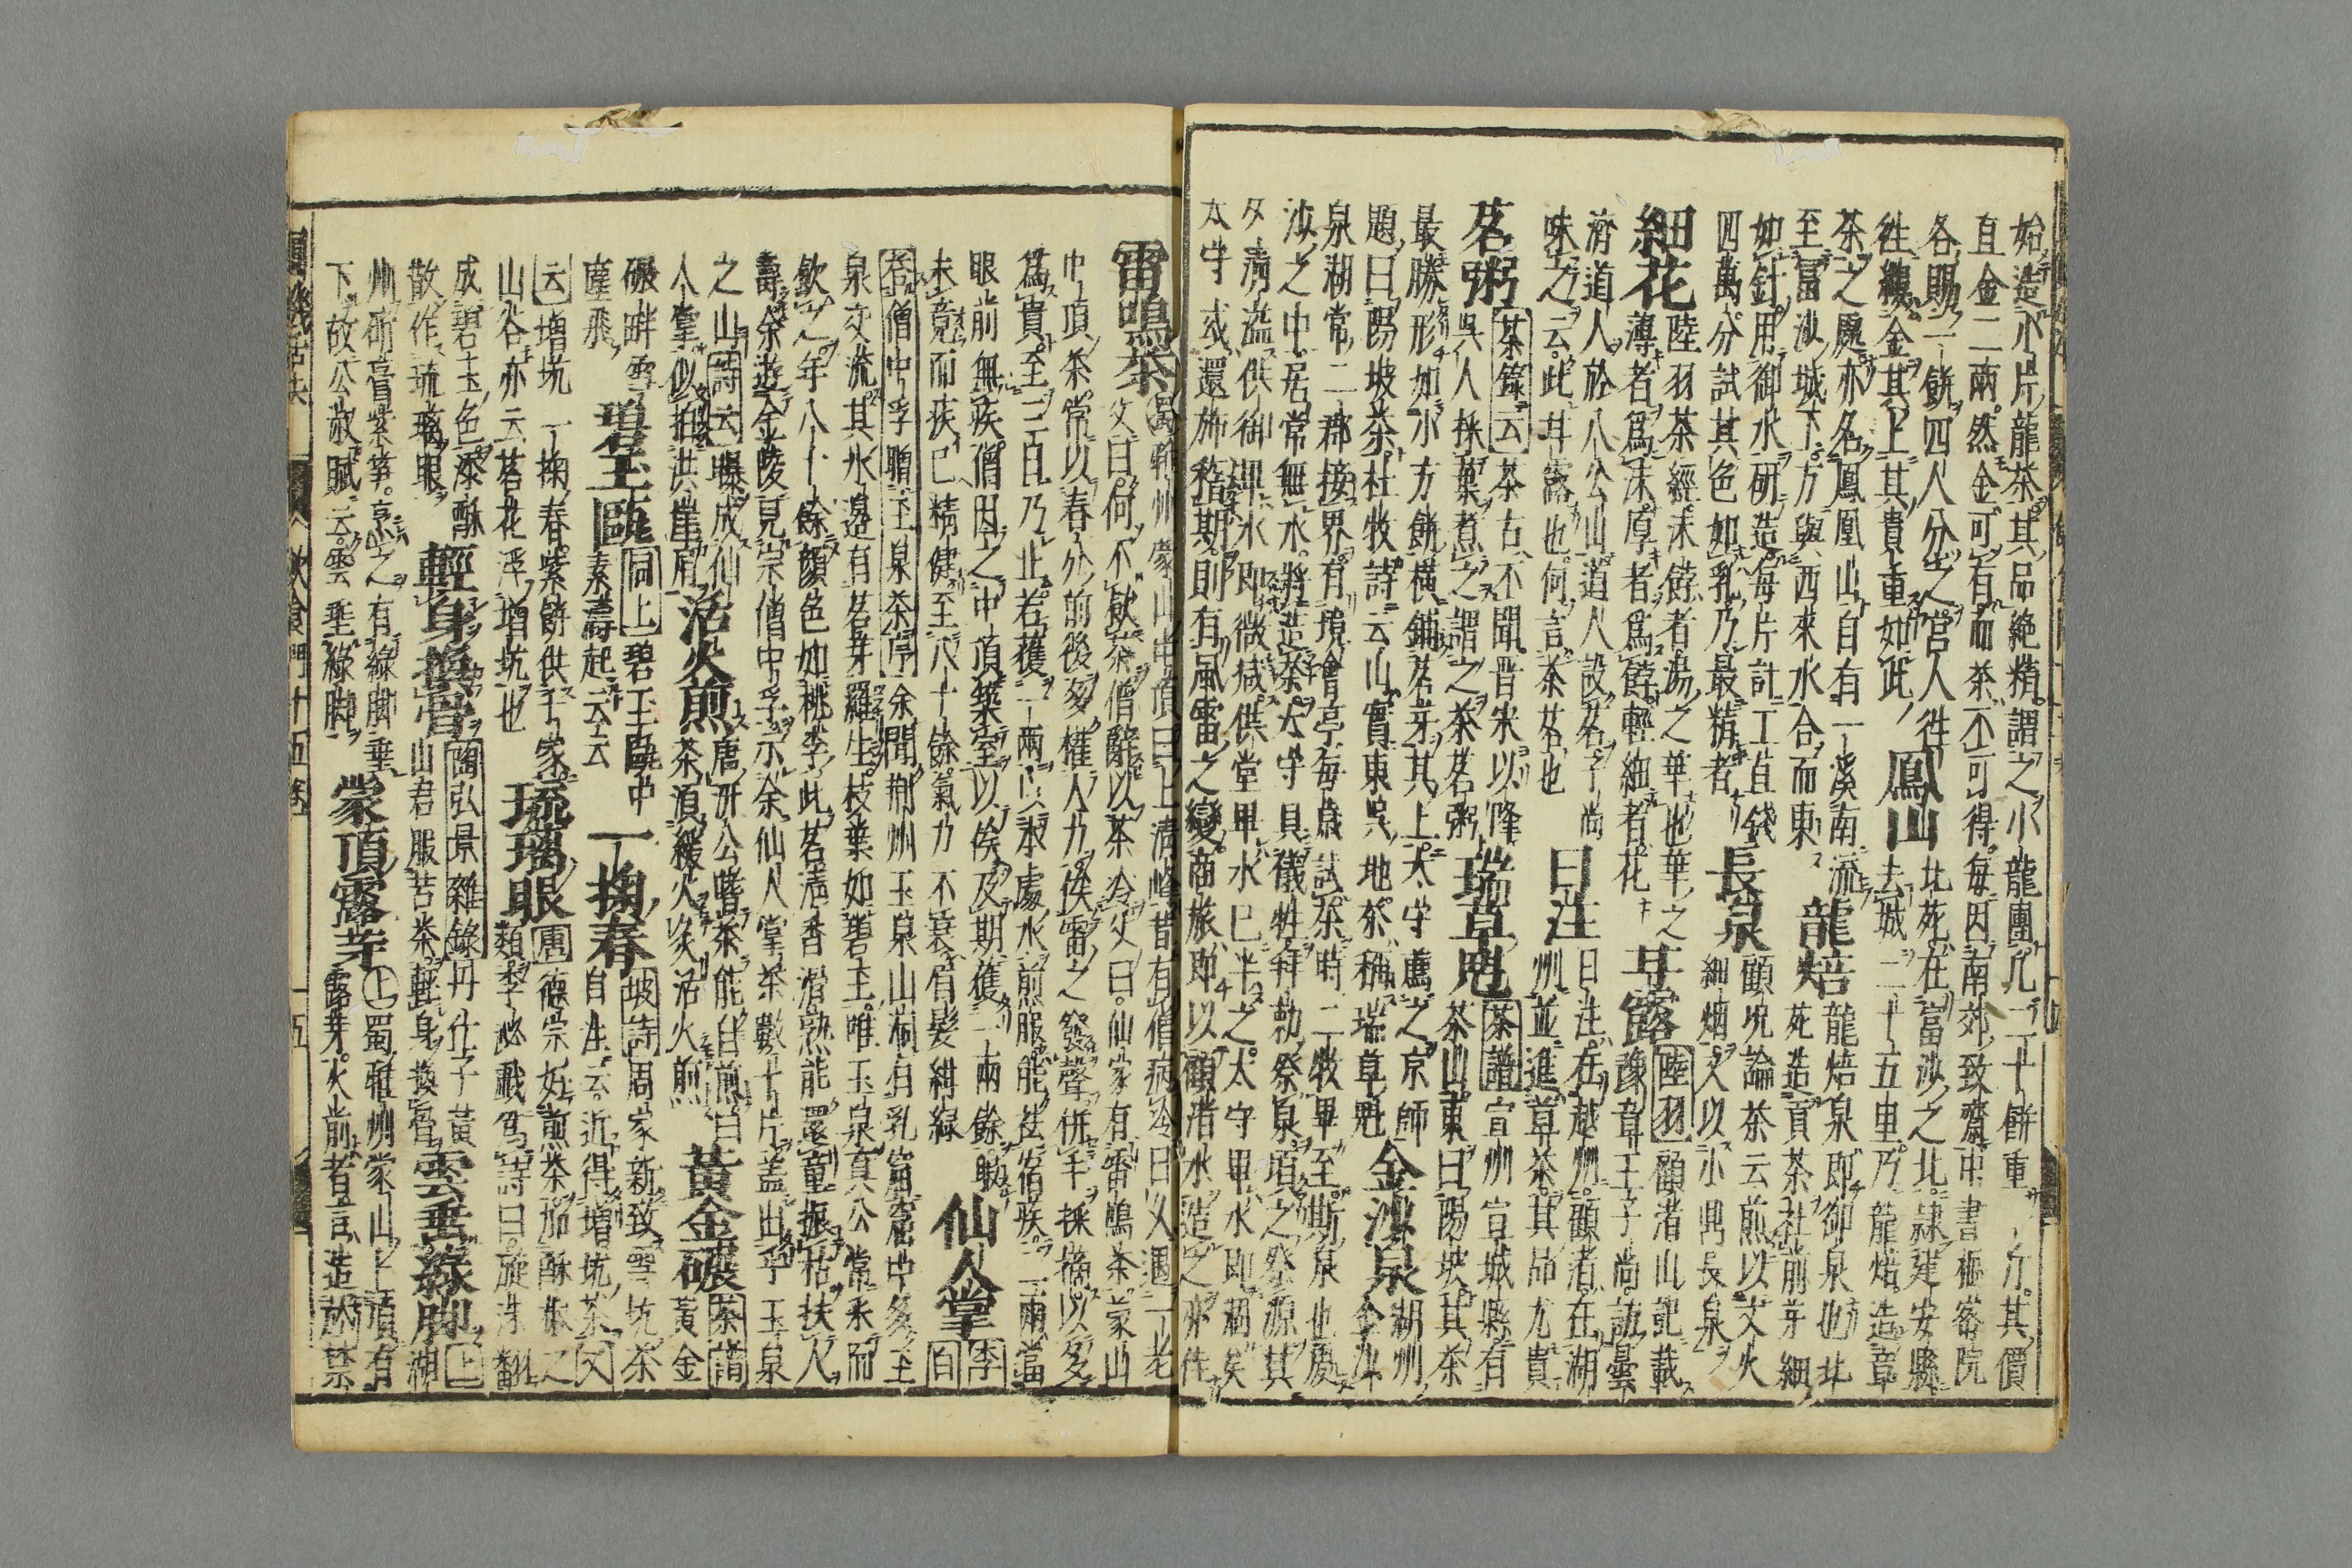 始造小片龍茶其品絶精謂之小龍團凡二十餅重一斤其價
直金二兩然金可有而茶不可得毎因南郊致齋中書樞密院
各賜一餅四人分之宮人往
往縷金其上其貴重如此
鳳山
北苑在富沙之北隷建安縣
去城二十五里乃龍焙造章
茶之處亦名鳳凰山自有一溪南流
至富沙城下方與西來水合而東
龍焙
龍焙泉即御泉也北
苑造貢茶社前芽細
如針用御水研造毎片計工直錢
四萬分試其色如乳乃最精者
長泉
顧況論茶云煎以文火
細烟又以小鼎長泉
細花
陸羽茶經末餑者湯之華也華之
薄者爲沫厚者爲餑輕細者花
甘露
陸羽顧渚山記載
豫章王子尚訪曇
濟道人於八公山道人設茗子尚
味之云此甘露也何言茶茗也
日注
日注在越州顧渚在湖
州並進草茶其品尤貴
茗粥
茶錄云茶古不聞晋宋以降
吳人採葉煮之謂之茶茗粥
瑞草魁
茶譜宣州宣城縣有
茶山東曰陽坡其茶
最勝形如小方餅横鋪茗芽其上太守薦之京師
題曰陽坡茶杜牧詩云山實東吳地茶稱瑞草魁
金沙泉
湖州
金沙
泉湖常二郡接界有境會亭毎歳試茶時二牧畢至斯泉也處
沙之中居常無水將造茶太守具儀牲拜勅祭泉頃之發源其
夕清溢供御畢水即微减供堂畢水已半之太守畢水即涸矣
太守或還旆稽期則有風雷之變商旅即以顧渚水造之亦佳
雷鳴茶
蒙山中頂曰上清峰昔有僧病冷日久遇一老
父曰何不飲茶僧辭以茶冷父曰仙家有雷鳴茶蒙山
中頂茶常以春分前後多權人力俟雷之發聲併手採摘以多
爲貴至三日乃止若獲一兩以本處水煎服能袪宿疾二兩當
眼前無疾僧因之中頂築室以俟及期獲一兩餘服
未竟而疾已精健至八十餘氣力不衰眉髮紺綠
仙人掌
李白
荅僧中孚贈玉泉茶序余聞荆州玉泉山洞有乳窟窟中多玉
泉交流其水邊有茗芽羅生枝葉如碧玉唯玉泉真公常采而
飲之年八十餘顏色如桃李此茗清香滑熟能還童振枯扶人
壽余遊金陵見宗僧中孚示余仙人掌茶數十片盖出乎玉泉
之山詩云曝成仙
人掌似拍洪崖肩
活火煎
唐汧公嗜茶能自煎曰
茶須緩火炙活火煎
黃金碾
茶譜
黃金
碾畔雪
塵飛
碧玉甌
同上碧玉甌中
素濤起云云
一掬春
坡詩周家新致雪坑茶
自注云近得增坑茶又
云增坑一掬春紫餅供千家
山谷亦云茗花浮增坑也
琉璃眼
唐德宗好煎茶加酥椒之
類李泌戲爲詩曰旋沫翻
成碧玉色添酥
散作琉璃眼
輕身換骨
陶弘景雜錄丹仕子黃
山君服苦茶輕身換骨
雲垂綠脚
上湖
州研膏紫笋烹之有綠脚垂
下故公淑賦云雲垂綠脚
蒙頂露芽
上蜀雅州蒙山上頂有
露芽火前者言造於禁
圓機活法
飲食門十五卷
五